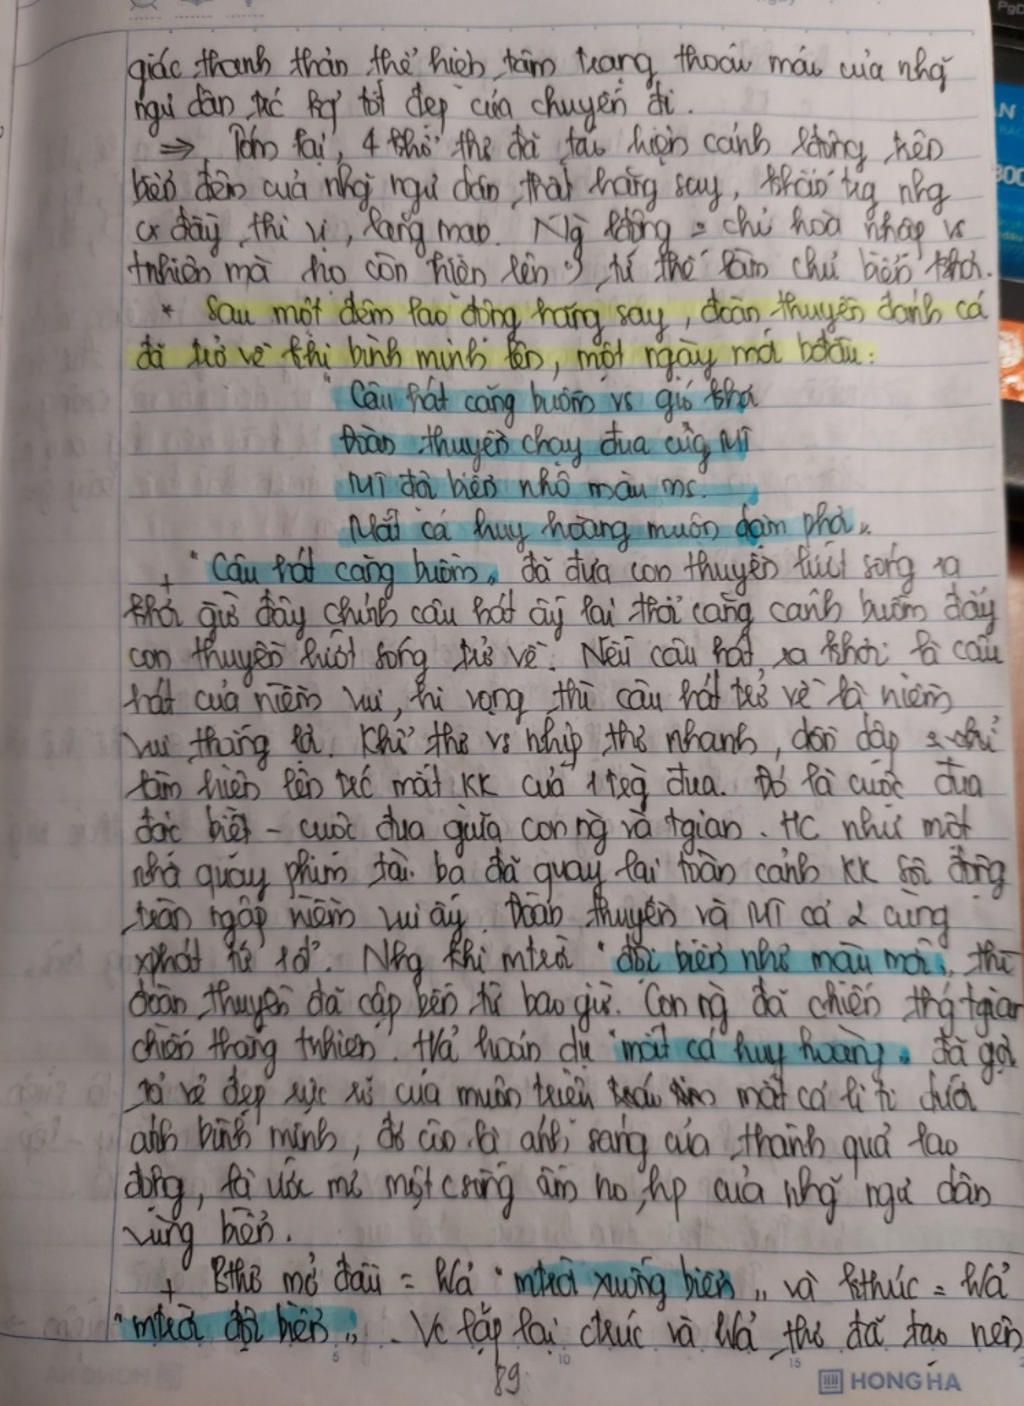 giác thanh thản thể hiện tâm trạng thoải mái của nhg̃
ngư dân trc̛ kq̉ tốt đẹp của chuyến đi.
⇒ Tóm lại, 4 khổ thơ đã tái hiện cảnh lđộng trên
biển đêm của nhg̃ ngư dân thật hăng say, khẩn trg nhg
cx đầy thi vị, lãng mạn. Ng̀ lđộng chỉ hòa nhập vs
tnhiên mà họ còn hiện lên tư thế làm chủ biển khơi.
* Sau một đêm lao động hăng say, đoàn thuyền đánh cá
đã trở về khi bình minh lên, một ngày mới bđầu:
"Câu hát căng buồm vs gió khơi
Đoàn thuyền chạy đua cùg MT
MT đội biển nhô màu ms.
Mắt cá huy hoàng muôn dặm phơi"
+ "Câu hát căng buồm" đã đưa con thuyền lướt sóng ra
khơi giờ đây chính câu hát ấy lại thổi căng cánh buồm đẩy
con thuyền lướt sóng trở về. Nếu câu hát ra khơi là câu
hát của niềm vui, hi vọng thì câu hát trở về là niềm
vui thắng lợi. Khổ thơ vs nhịp thơ nhanh, dồn dập
làm hiện lên trc̛ mắt KK của 1 trg đua. Đó là cuộc đua
đặc biệt - cuộc đua giữa con ng̀ và tgian. HC như một
nhà quay phim tài ba đã quay lại toàn cảnh KK sôi động
tràn ngập niềm vui ấy. Đoàn thuyền và MT cả 2 cùng
xphát từ 1đ'. Nhg khi mtrời "đội biển nhô màu mới" thì
đoàn thuyền đã cập bến từ bao giờ. Con ng̀ đã chiến thg tgian
chiến thắng tnhiên. H/ả hoán dụ "mắt cá huy hoàng" đã gợi
tả vẻ đẹp rực rỡ của muôn triệu mắt cá li ti dưới
ánh bình minh, đó còn là ánh sáng của thành quả lao
động, là ước mơ một csống ấm no, hp của nhg̃ ngư dân
vùng biển.
+ Bthơ mở đầu = h/ả "mtrời xuống biển" và kthúc = h/ả
"mtrời đội biển". Vc lặp lại ctrúc và h/ả thơ đã tạo nên
89
HONG HA